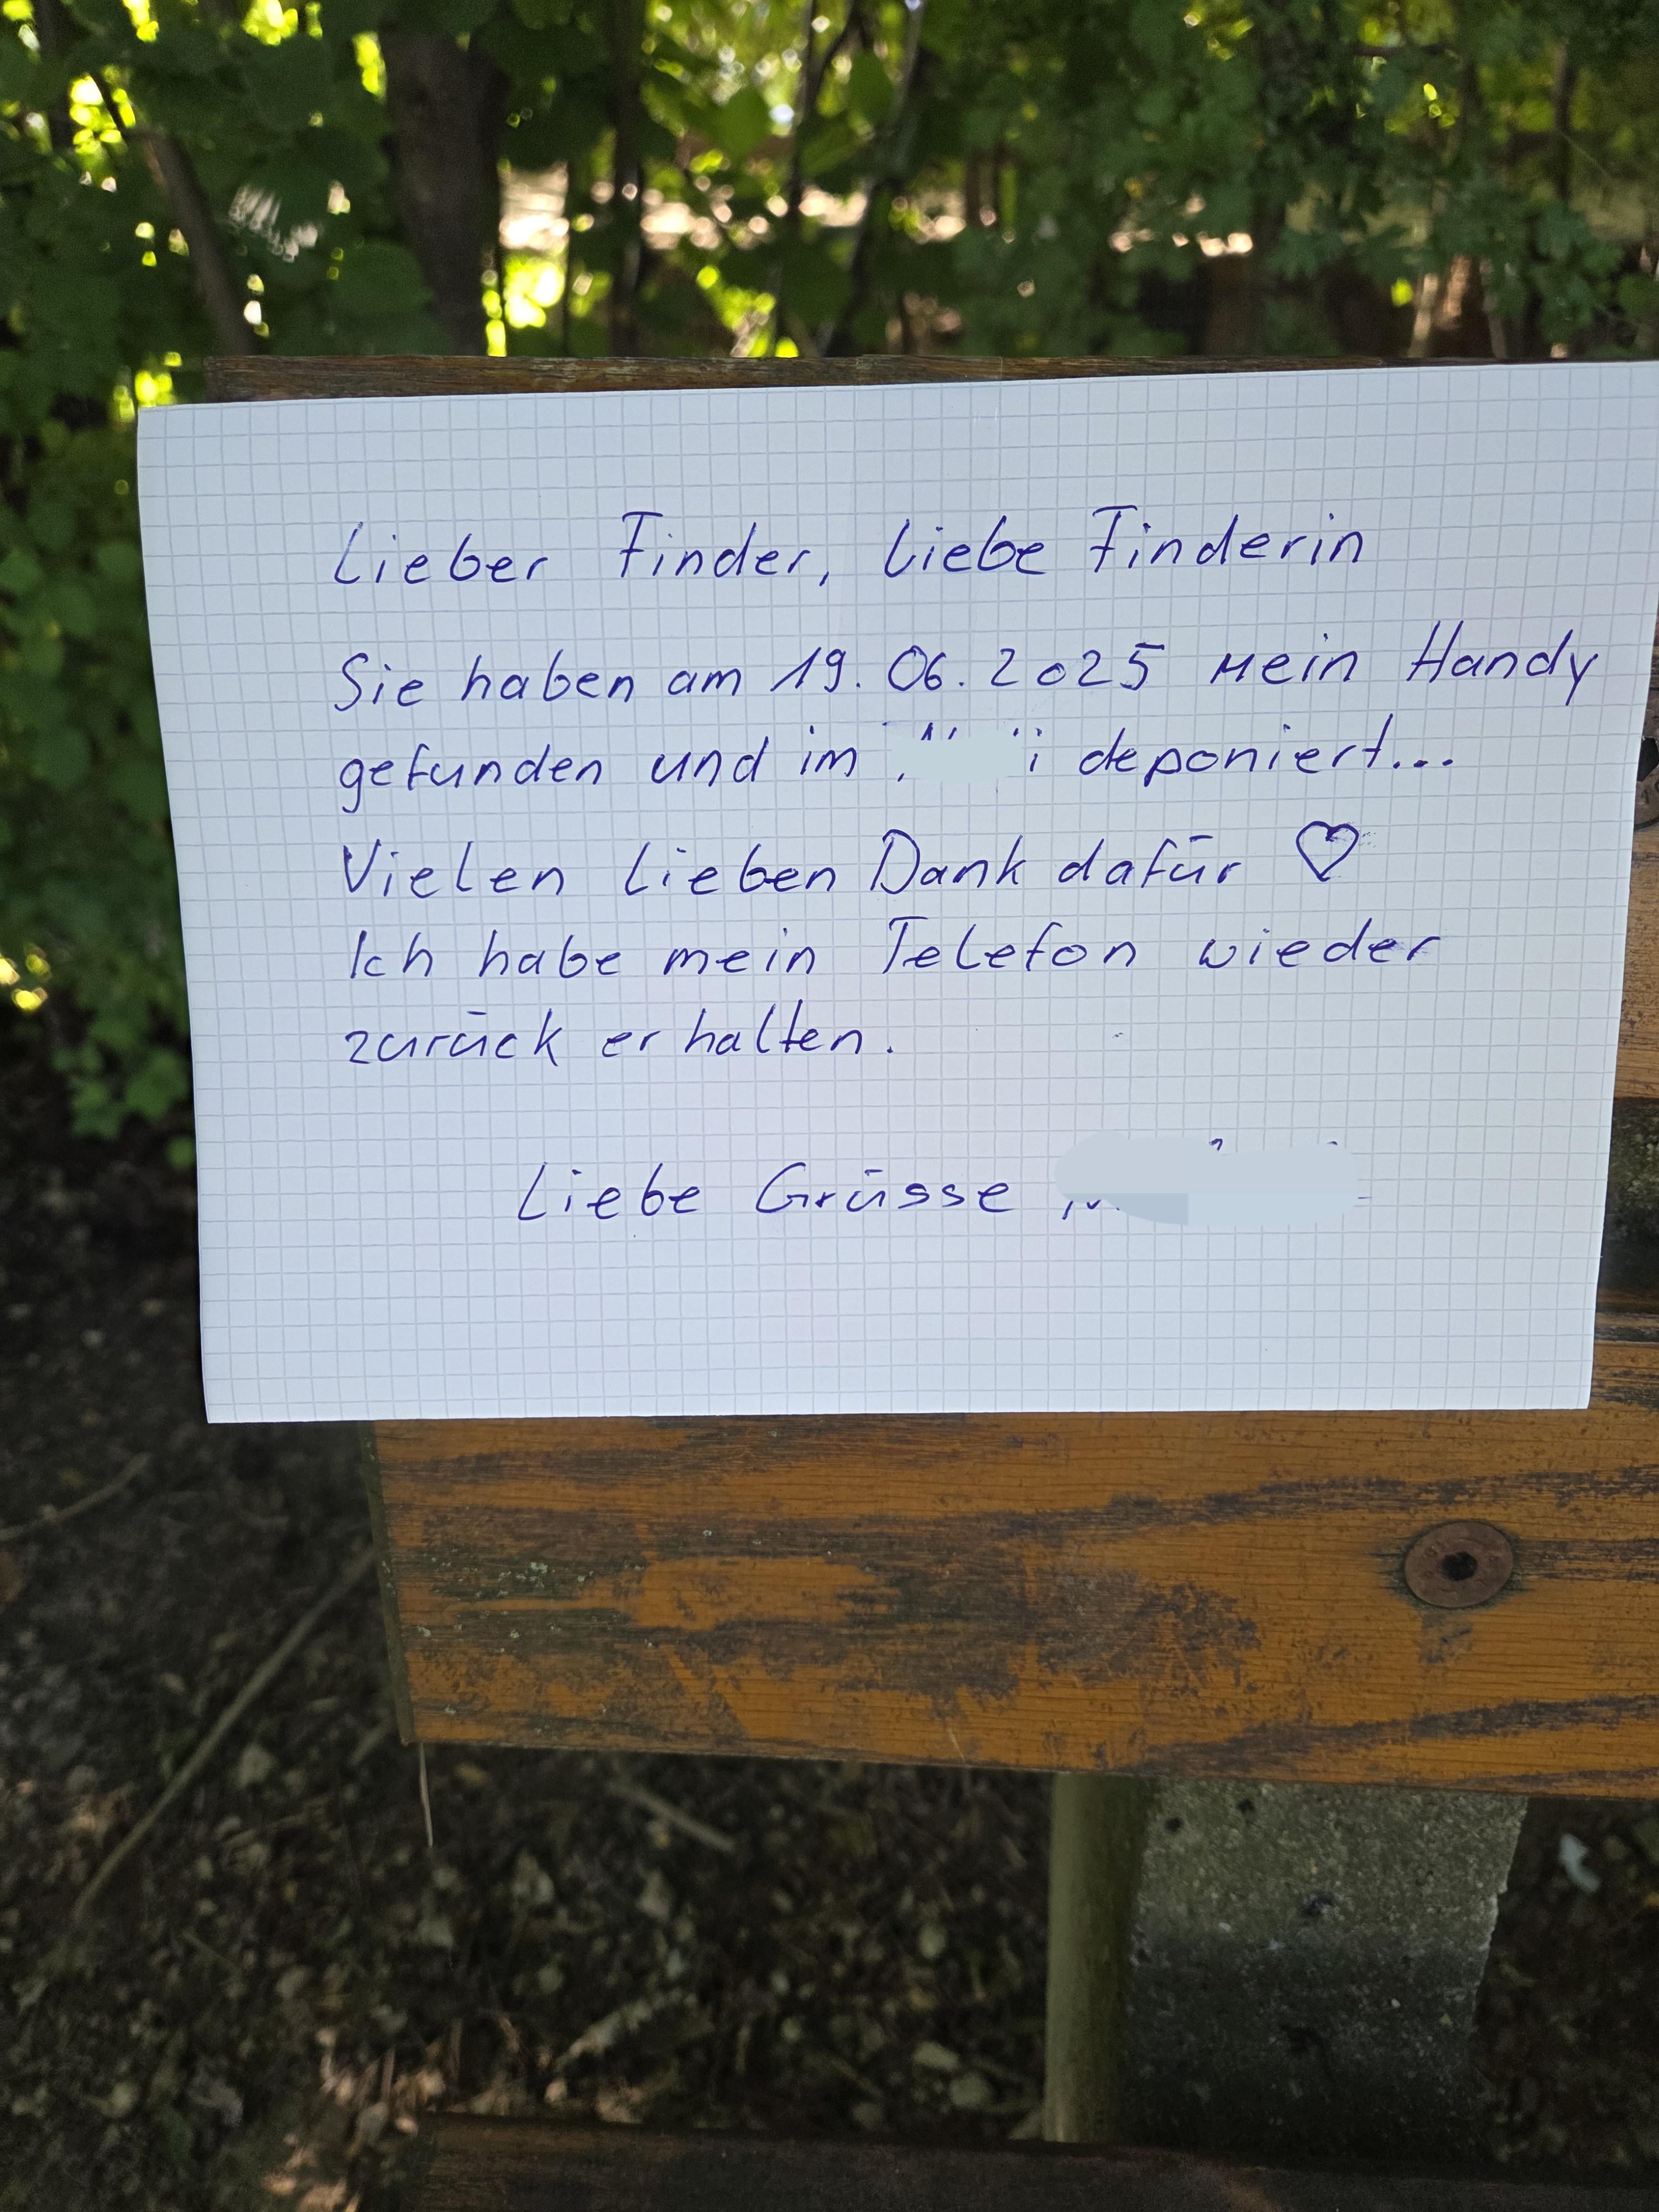 Lieber Finder, liebe Finderin
Sie haben am 19.06.2025 mein Handy
gefunden und im deponiert...
Vielen lieben Dank dafür ♡
Ich habe mein Telefon wieder
zurück erhalten.
Liebe Grüsse